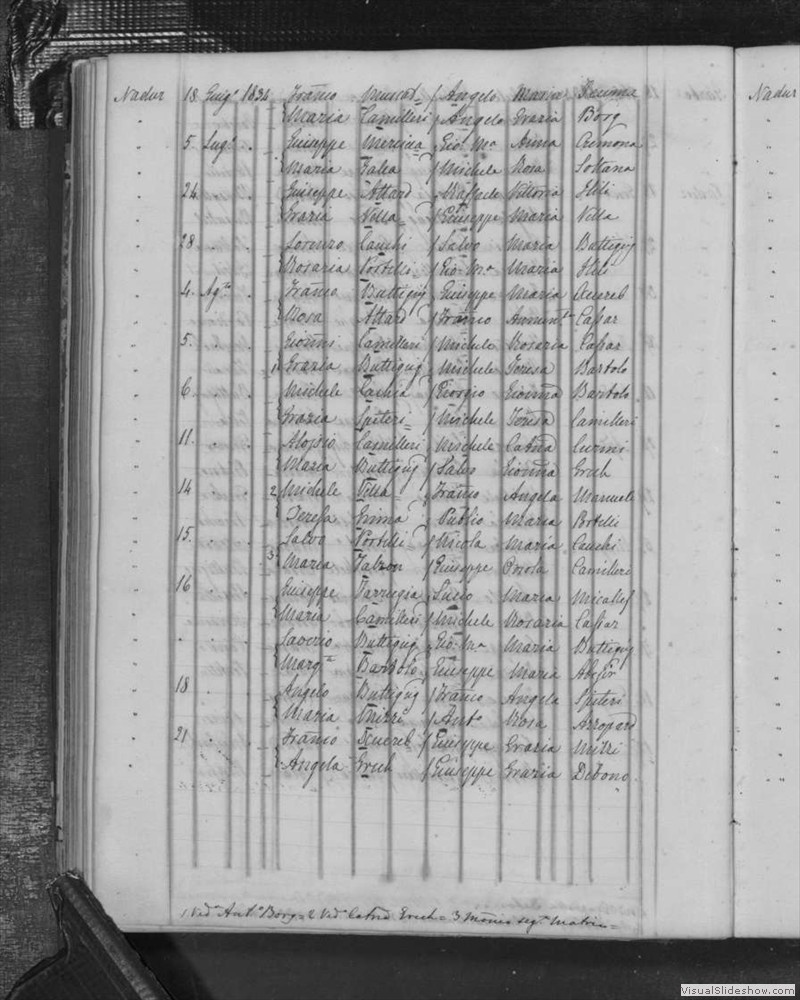 Nadur 18 Giug.o 1834 Franco Muscat / Angelo Maria Nadur
Maria Camilleri / Angelo Grazia Borg
5. Lug.o Giuseppe / Gio: Ma Anna Cremona
Maria / Michele Rosa Soltana
24 Giuseppe Attard / Raffaele Vittoria
Grazia Vella / Giuseppe Maria Vella
28 Lorenzo Cauchi / Salvo Maria Buttigieg
Rosaria Portelli / Gio: Ma Maria
4. Ag.to Franco Buttigieg / Giuseppe Maria
Rosa Attard / Franco Cassar
5. Gionni Camilleri / Michele Rosaria Cassar
1 Grazia Buttigieg / Michele Teresa Bartolo
6 Michele / Giorgio Gionna Bartolo
Grazia Spiteri / Michele Teresa Camilleri
11. Aloisio Camilleri / Michele Catna Curmi
Maria Buttigieg / Salvo Gionna Grech
14 2 Michele Vella / Franco Angela
Teresa Grima / Publio Maria Portelli
15. Salvo Portelli / Nicola Maria Cauchi
3 Maria Falzon / Giuseppe Camilleri
16 Giuseppe Farrugia / Maria Micallef
Maria Camilleri / Michele Rosaria Cassar
Saverio Buttigieg / Gio: Ma Maria Buttigieg
Marg.ta Bartolo / Giuseppe Maria
18 Angelo Buttigieg / Franco Angela Spiteri
Maria Mizzi / Anto Rosa Azzopard
21 Franco / Giuseppe Grazia Mizzi
Angela Grech / Giuseppe Grazia Debono.
1 Ved.a Ant.o Borg = 2 Ved.o Catna Grech = 3
VisualSlideshow.com